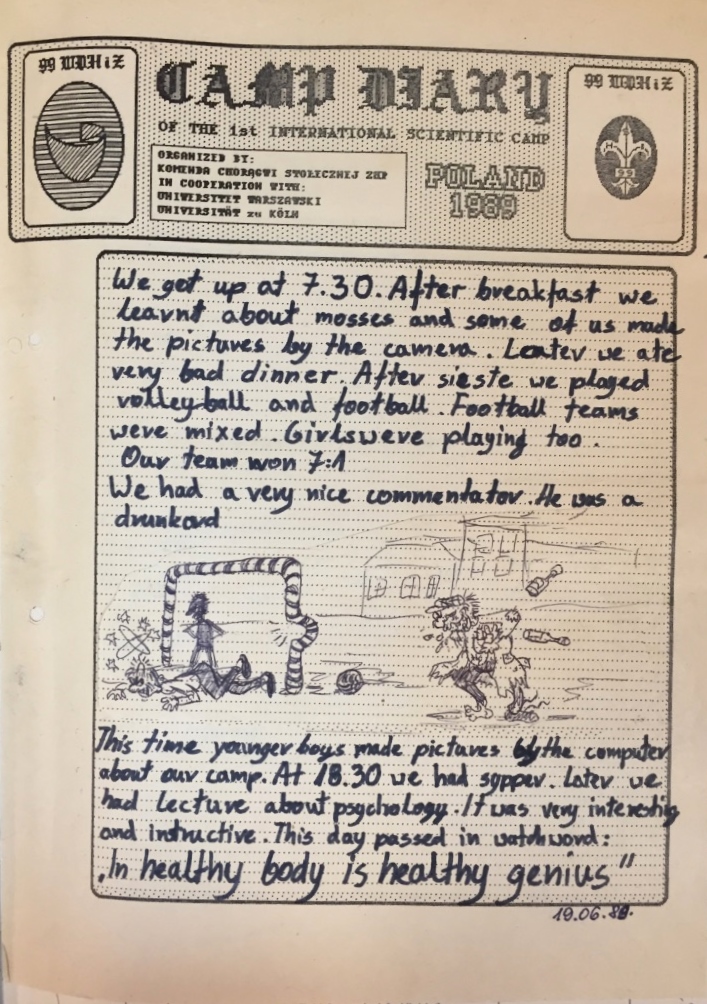 99 WDHiZ
CAMP DIARY
OF THE 1st INTERNATIONAL SCIENTIFIC CAMP
ORGANIZED BY:
KOMENDA CHORĄGWI STOŁECZNEJ ZHP
IN COOPERATION WITH:
UNIWERSYTET WARSZAWSKI
UNIVERSITÄT zu KÖLN
POLAND
1989
99 WDHiZ
99
We get up at 7.30. After breakfast we
learnt about mosses and some of us made
the pictures by the camera. Loater we ate
very bad dinner. After sieste we played
volleyball and football. Football teams
were mixed. Girls were playing too.
Our team won 7:1
We had a very nice commentator. He was a
drunkard
This time younger boys made pictures by the computer
about our camp. At 18.30 we had sypper. Later we
had lecture about psychology. It was very interestig
and instructive. This day passed in watchword:
„In healthy body is healthy genius"
19.06.89.